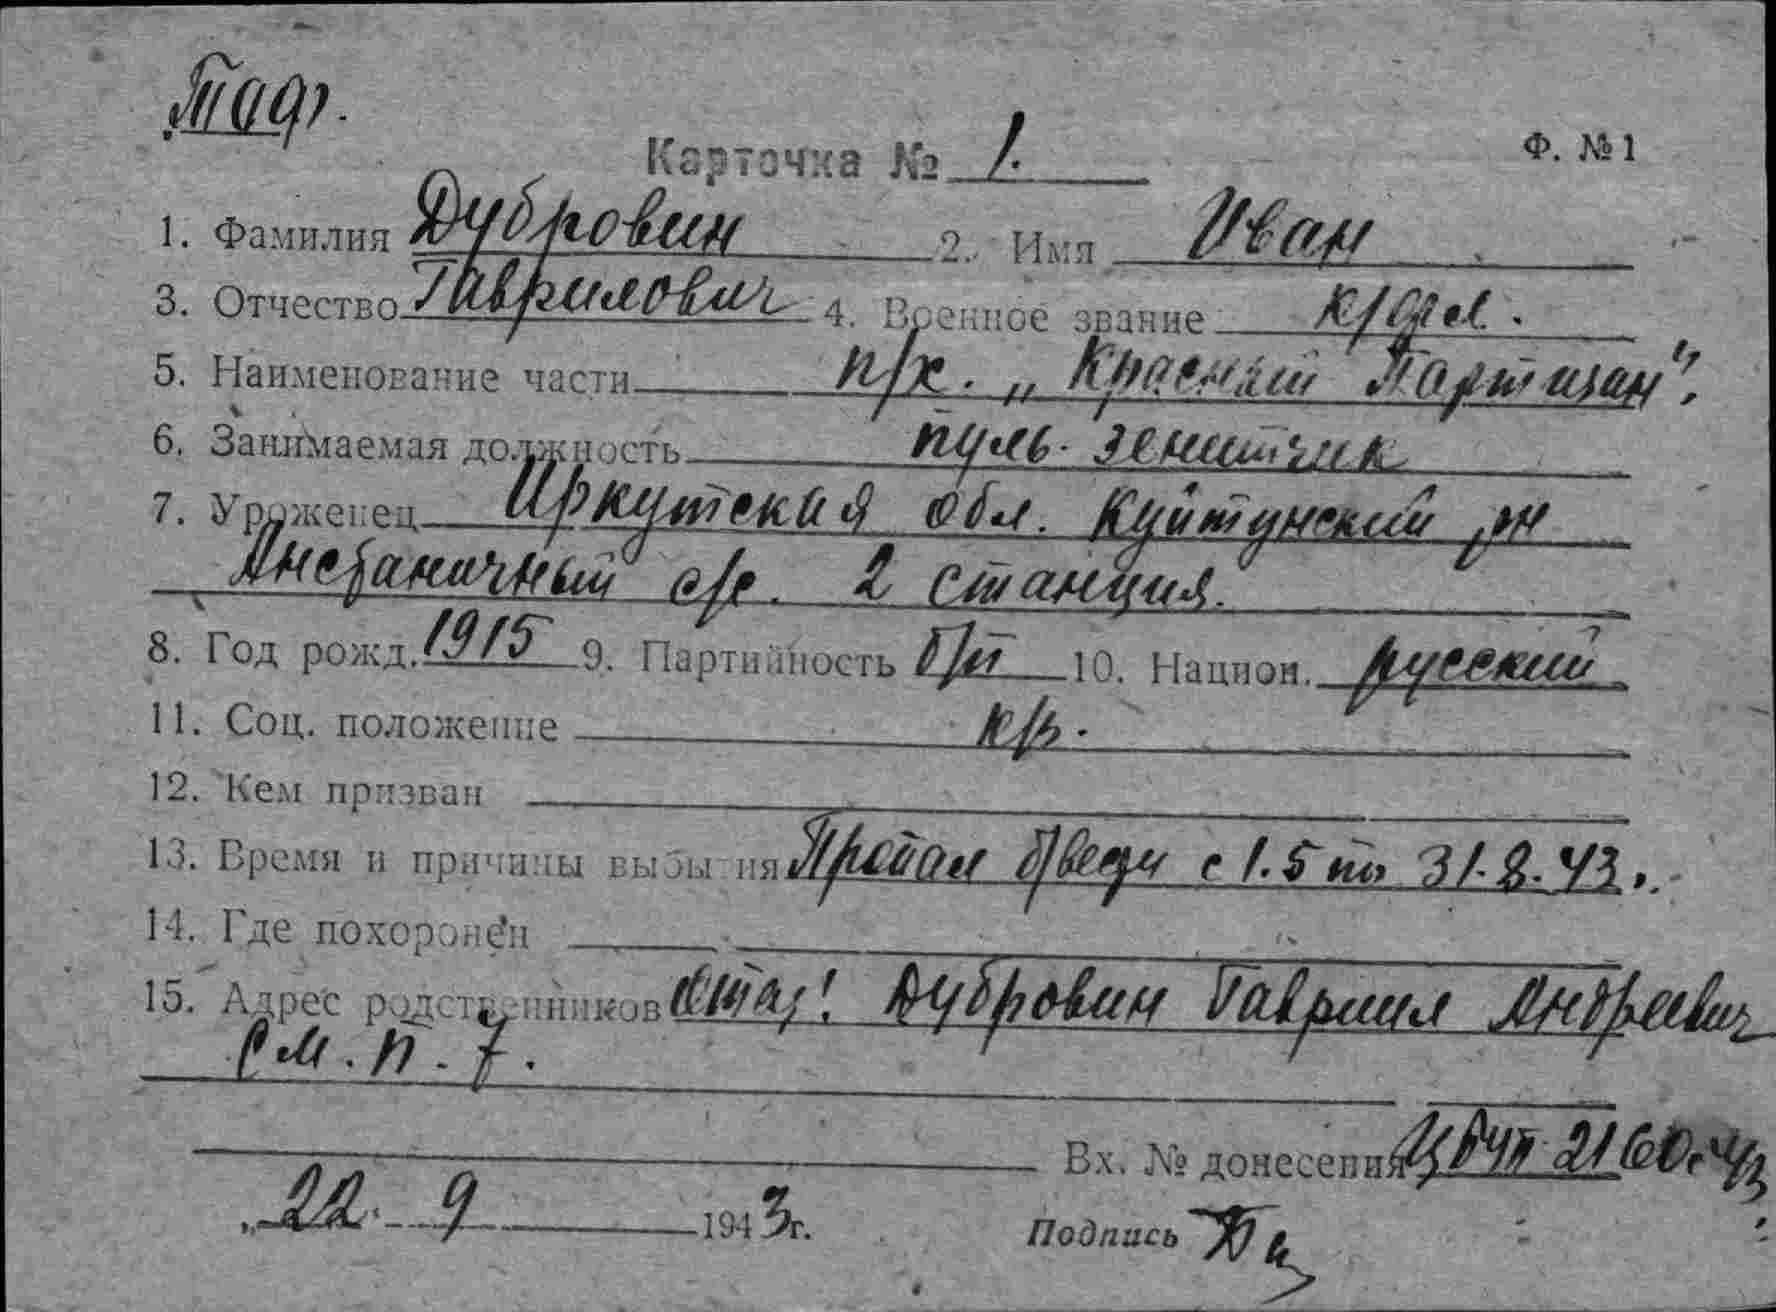 ТОФ.
Карточка № 1. Ф. № 1
1. Фамилия Дубровин 2. Имя Иван
3. Отчество Гаврилович 4. Военное звание к/фл.
5. Наименование части п/х. „Красный Партизан".
6. Занимаемая должность пуль. зенитчик
7. Уроженец Иркутская обл. Куйтунский рн
с/с. 2 станция.
8. Год рожд. 1915 9. Партийность б/п 10. Национ. русский
11. Соц. положение к/р.
12. Кем призван
13. Время и причины выбытия Пропал б/вести с 1.5 по 31.8.43.
14. Где похоронен
15. Адрес родственников Отец: Дубровин Гавриил Андреевич
См. п. 7.
Вх. № донесения 2160.43
„22. 9 1943г. Подпись